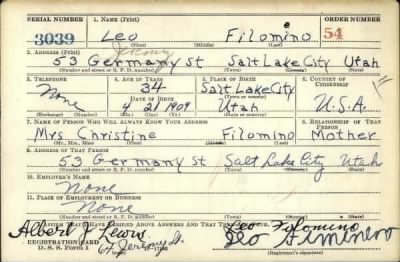 SERIAL NUMBER 1. NAME (Print) ORDER NUMBER
3039 Leo Filomino 54
(First) (Middle) (Last)
Jeremy
2. ADDRESS (Print)
53 Germany St Salt Lake City Utah
(Number and street or R. F. D. number) (Town) (County) (State)
3. TELEPHONE 4. AGE IN YEARS 5. PLACE OF BIRTH 6. COUNTRY OF CITIZENSHIP
None 34 Salt Lake City
DATE OF BIRTH
4 21 1909 Utah U.S.A.
(Exchange) (Number) (Mo.) (Day) (Yr.) (State or country)
7. NAME OF PERSON WHO WILL ALWAYS KNOW YOUR ADDRESS 8. RELATIONSHIP OF THAT PERSON
Mrs Christine Filomino Mother
(Mr., Mrs., Miss) (First) (Middle) (Last)
9. ADDRESS OF THAT PERSON
53 Germany St Salt Lake City Utah
(Number and street or R. F. D. number) (Town) (County) (State)
10. EMPLOYER'S NAME
None
11. PLACE OF EMPLOYMENT OR BUSINESS
None
I AFFIRM THAT I HAVE VERIFIED ABOVE ANSWERS AND THAT THEY
Albert Lewis Leo Filomino
REGISTRATION CARD
D. S. S. FORM 1 Leo
(Registrant's signature)